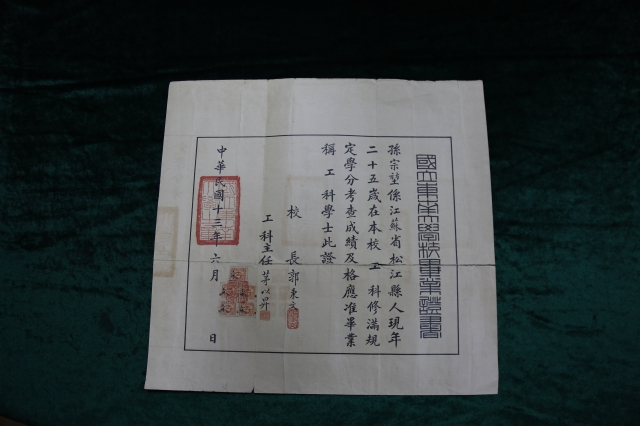 國立東南大學校畢業證書
孫宗堃係江蘇省松江縣人現年
二十五歲在本校工科修滿規
定學分考查成績及格應准畢業
稱工科學士此證
校長郭秉文
工科主任茅以昇
中華民國十三年六月 日